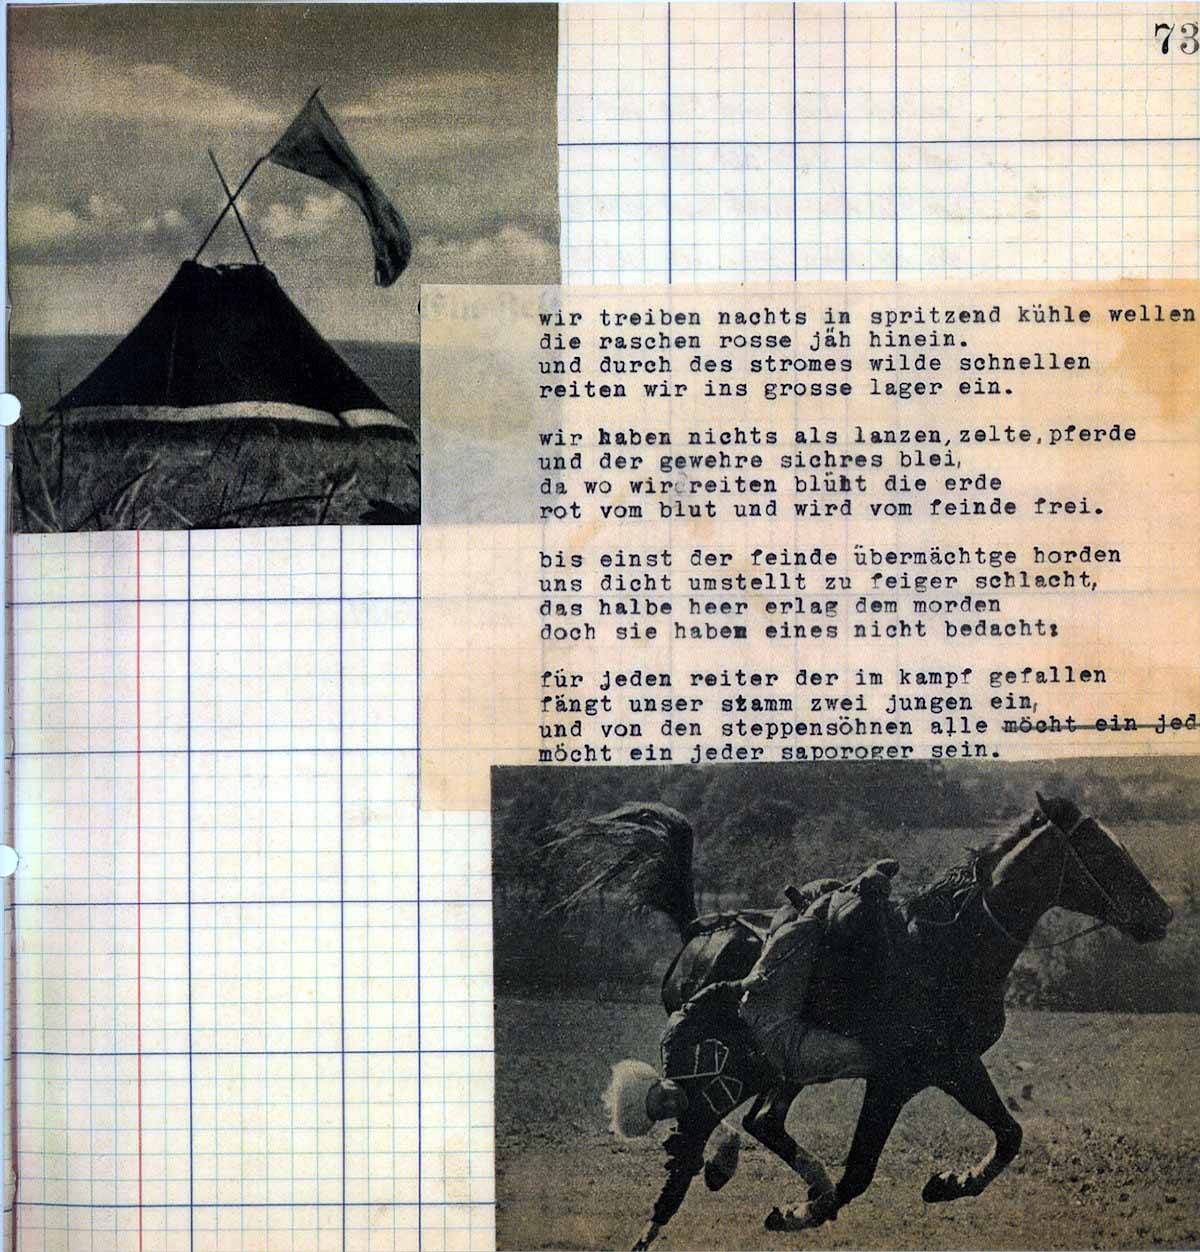 73
wir treiben nachts in spritzend kühle wellen
die raschen rosse jäh hinein.
und durch des stromes wilde schnellen
reiten wir ins grosse lager ein.
wir haben nichts als lanzen,zelte,pferde
und der gewehre sichres blei,
da wo wir reiten blüht die erde
rot vom blut und wird vom feinde frei.
bis einst der feinde übermächtge horden
uns dicht umstellt zu feiger schlacht,
das halbe heer erlag dem morden
doch sie haben eines nicht bedacht:
für jeden reiter der im kampf gefallen
fängt unser stamm zwei jungen ein,
und von den steppensöhnen alle möcht ein jed
möcht ein jeder saporoger sein.